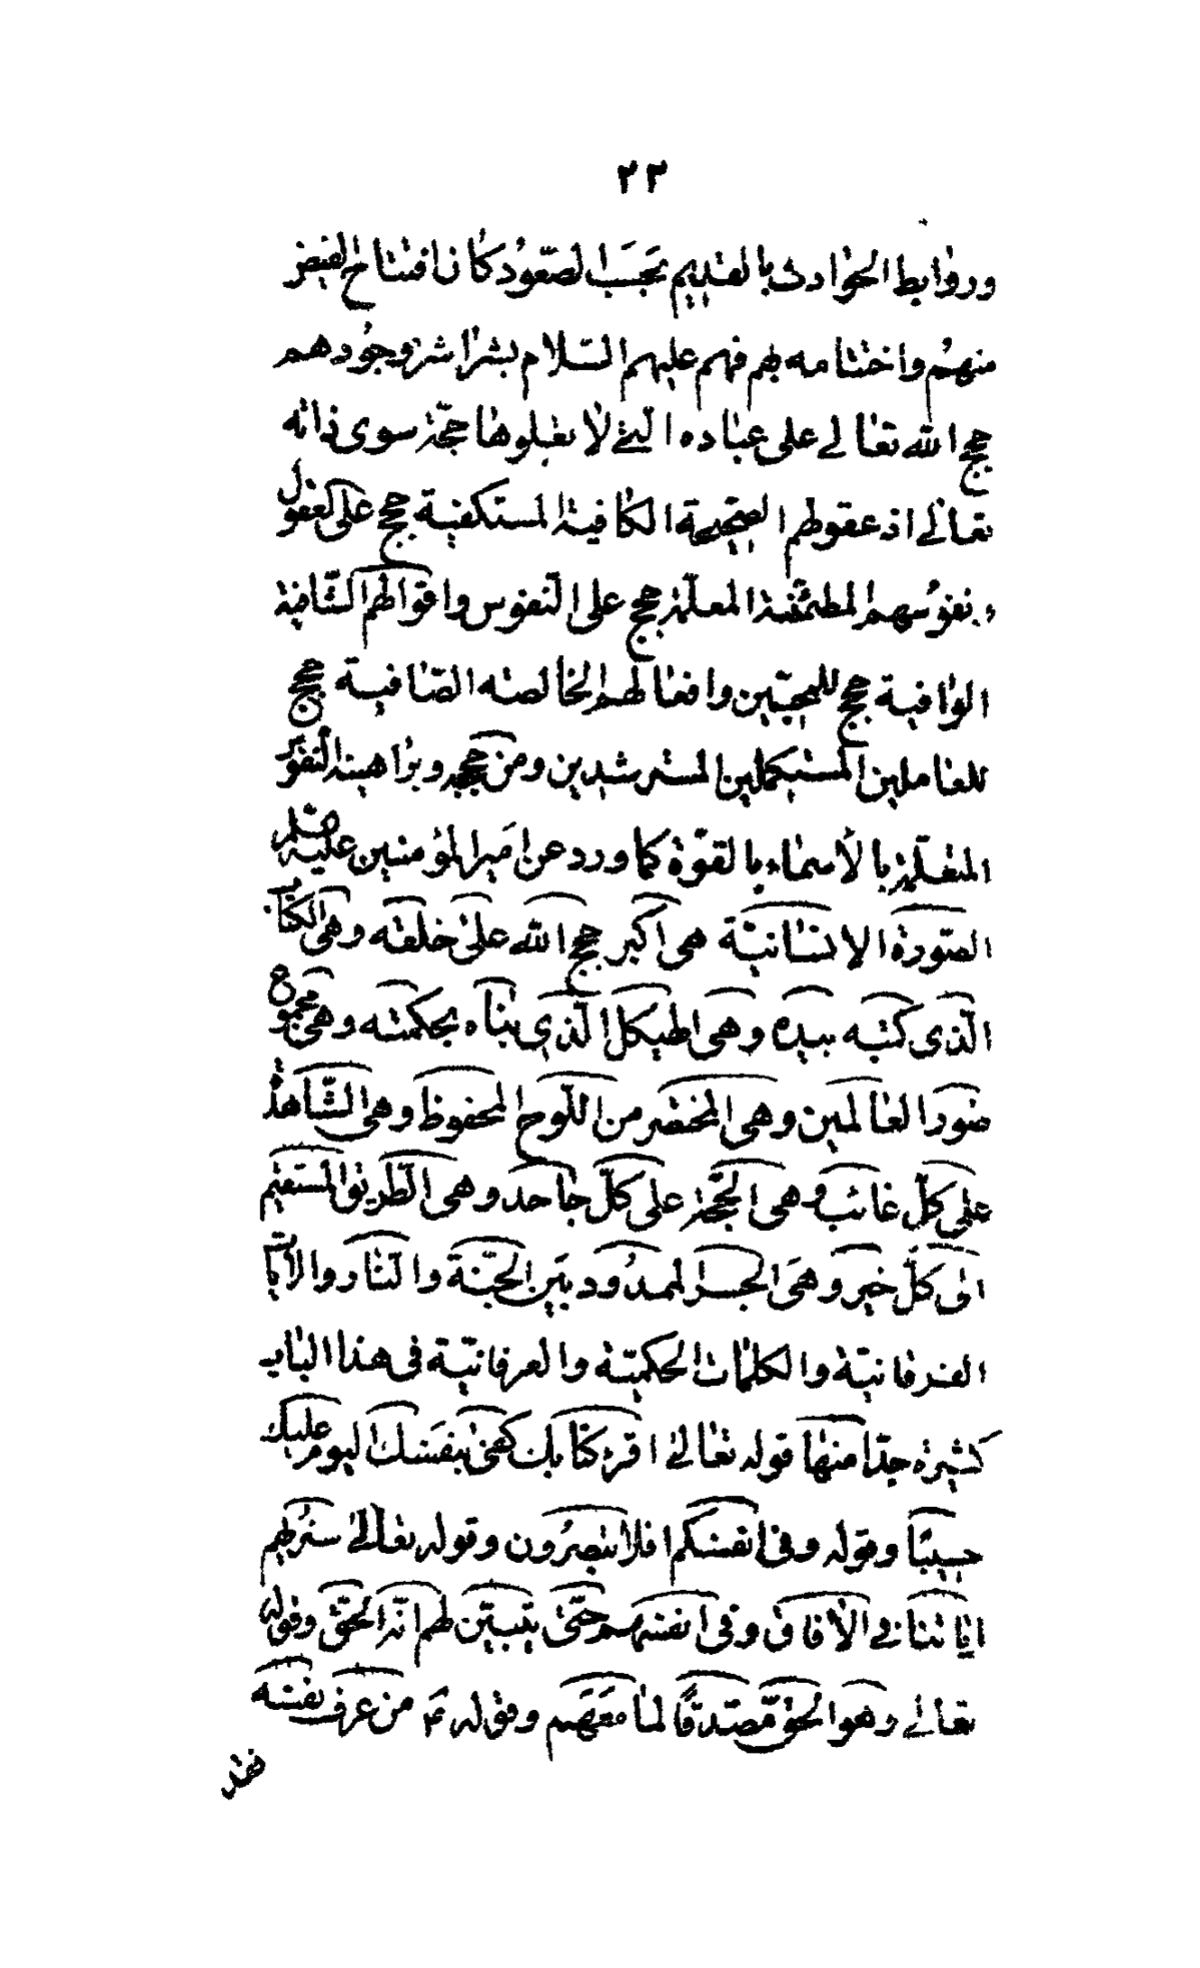 ٢٣
وروابط الحوادث بالقديم بحسب الصعود كان افتتاح الفيض
منهم واختتامه بهم فهم عليهم السّلام بشراشر وجودهم
حجج الله تعالى على عباده الّتى لا يعلوها حجّة سوى ذاته
تعالى اذ عقولهم الكافية المستكفية حجج على العقول
ونفوسهم المطمئنّة المعلّمة حجج على النّفوس واقوالهم الشّافية
الوافية حجج للمحبّين وافعالهم الخالصة الصّافية حجج
للعاملين المستكملين المسترشدين ومن حججه وبراهينه النّفوس
المتعلّمة بالأسماء بالقوّة كما ورد عن امير المؤمنين عليه السّلام
الصّورة الانسانيّة هى اكبر حجج الله على خلقه وهى الكتاب
الّذى كتبه بيده وهى الهيكل الّذى بناه بحكمته وهى مجموع
صور العالمين وهى المختصر من اللّوح المحفوظ وهى الشّاهد
على كلّ غائب وهى الحجّة على كلّ جاحد وهى الطّريق المستقيم
الى كلّ خير وهى الجسر الممدود بين الجنّة والنّار والايات
الفرقانيّة والكلمات الحكميّة والعرفانيّة فى هذا الباب
كثيرة جدّا منها قوله تعالى اقرء كتابك كفى بنفسك اليوم عليك
حسيبًا وقوله وفى انفسكم افلا تبصرون وقوله تعالى سنريهم
اياتنا فى الافاق وفى انفسهم حتّى يتبيّن لهم انّه الحقّ وقوله
تعالى وهو الحقّ مصدّقًا لما معهم وقوله ۴ من عرف نفسه
فقد